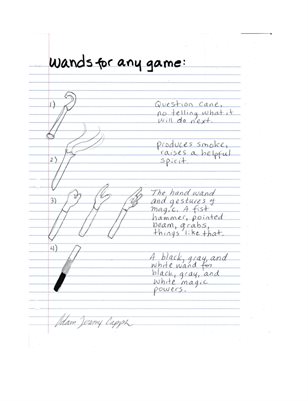 Wands for any game:
1)
Question Cane,
no telling what it
will do next.
2)
produces smoke,
raises a helpful
spirit.
3)
The hand wand
and gestures of
magic. A fist
hammer, pointed
beam, grabs,
things like that.
4)
A black, gray, and
white wand for
black, gray, and
white magic
powers.
Adam Jeremy Capps